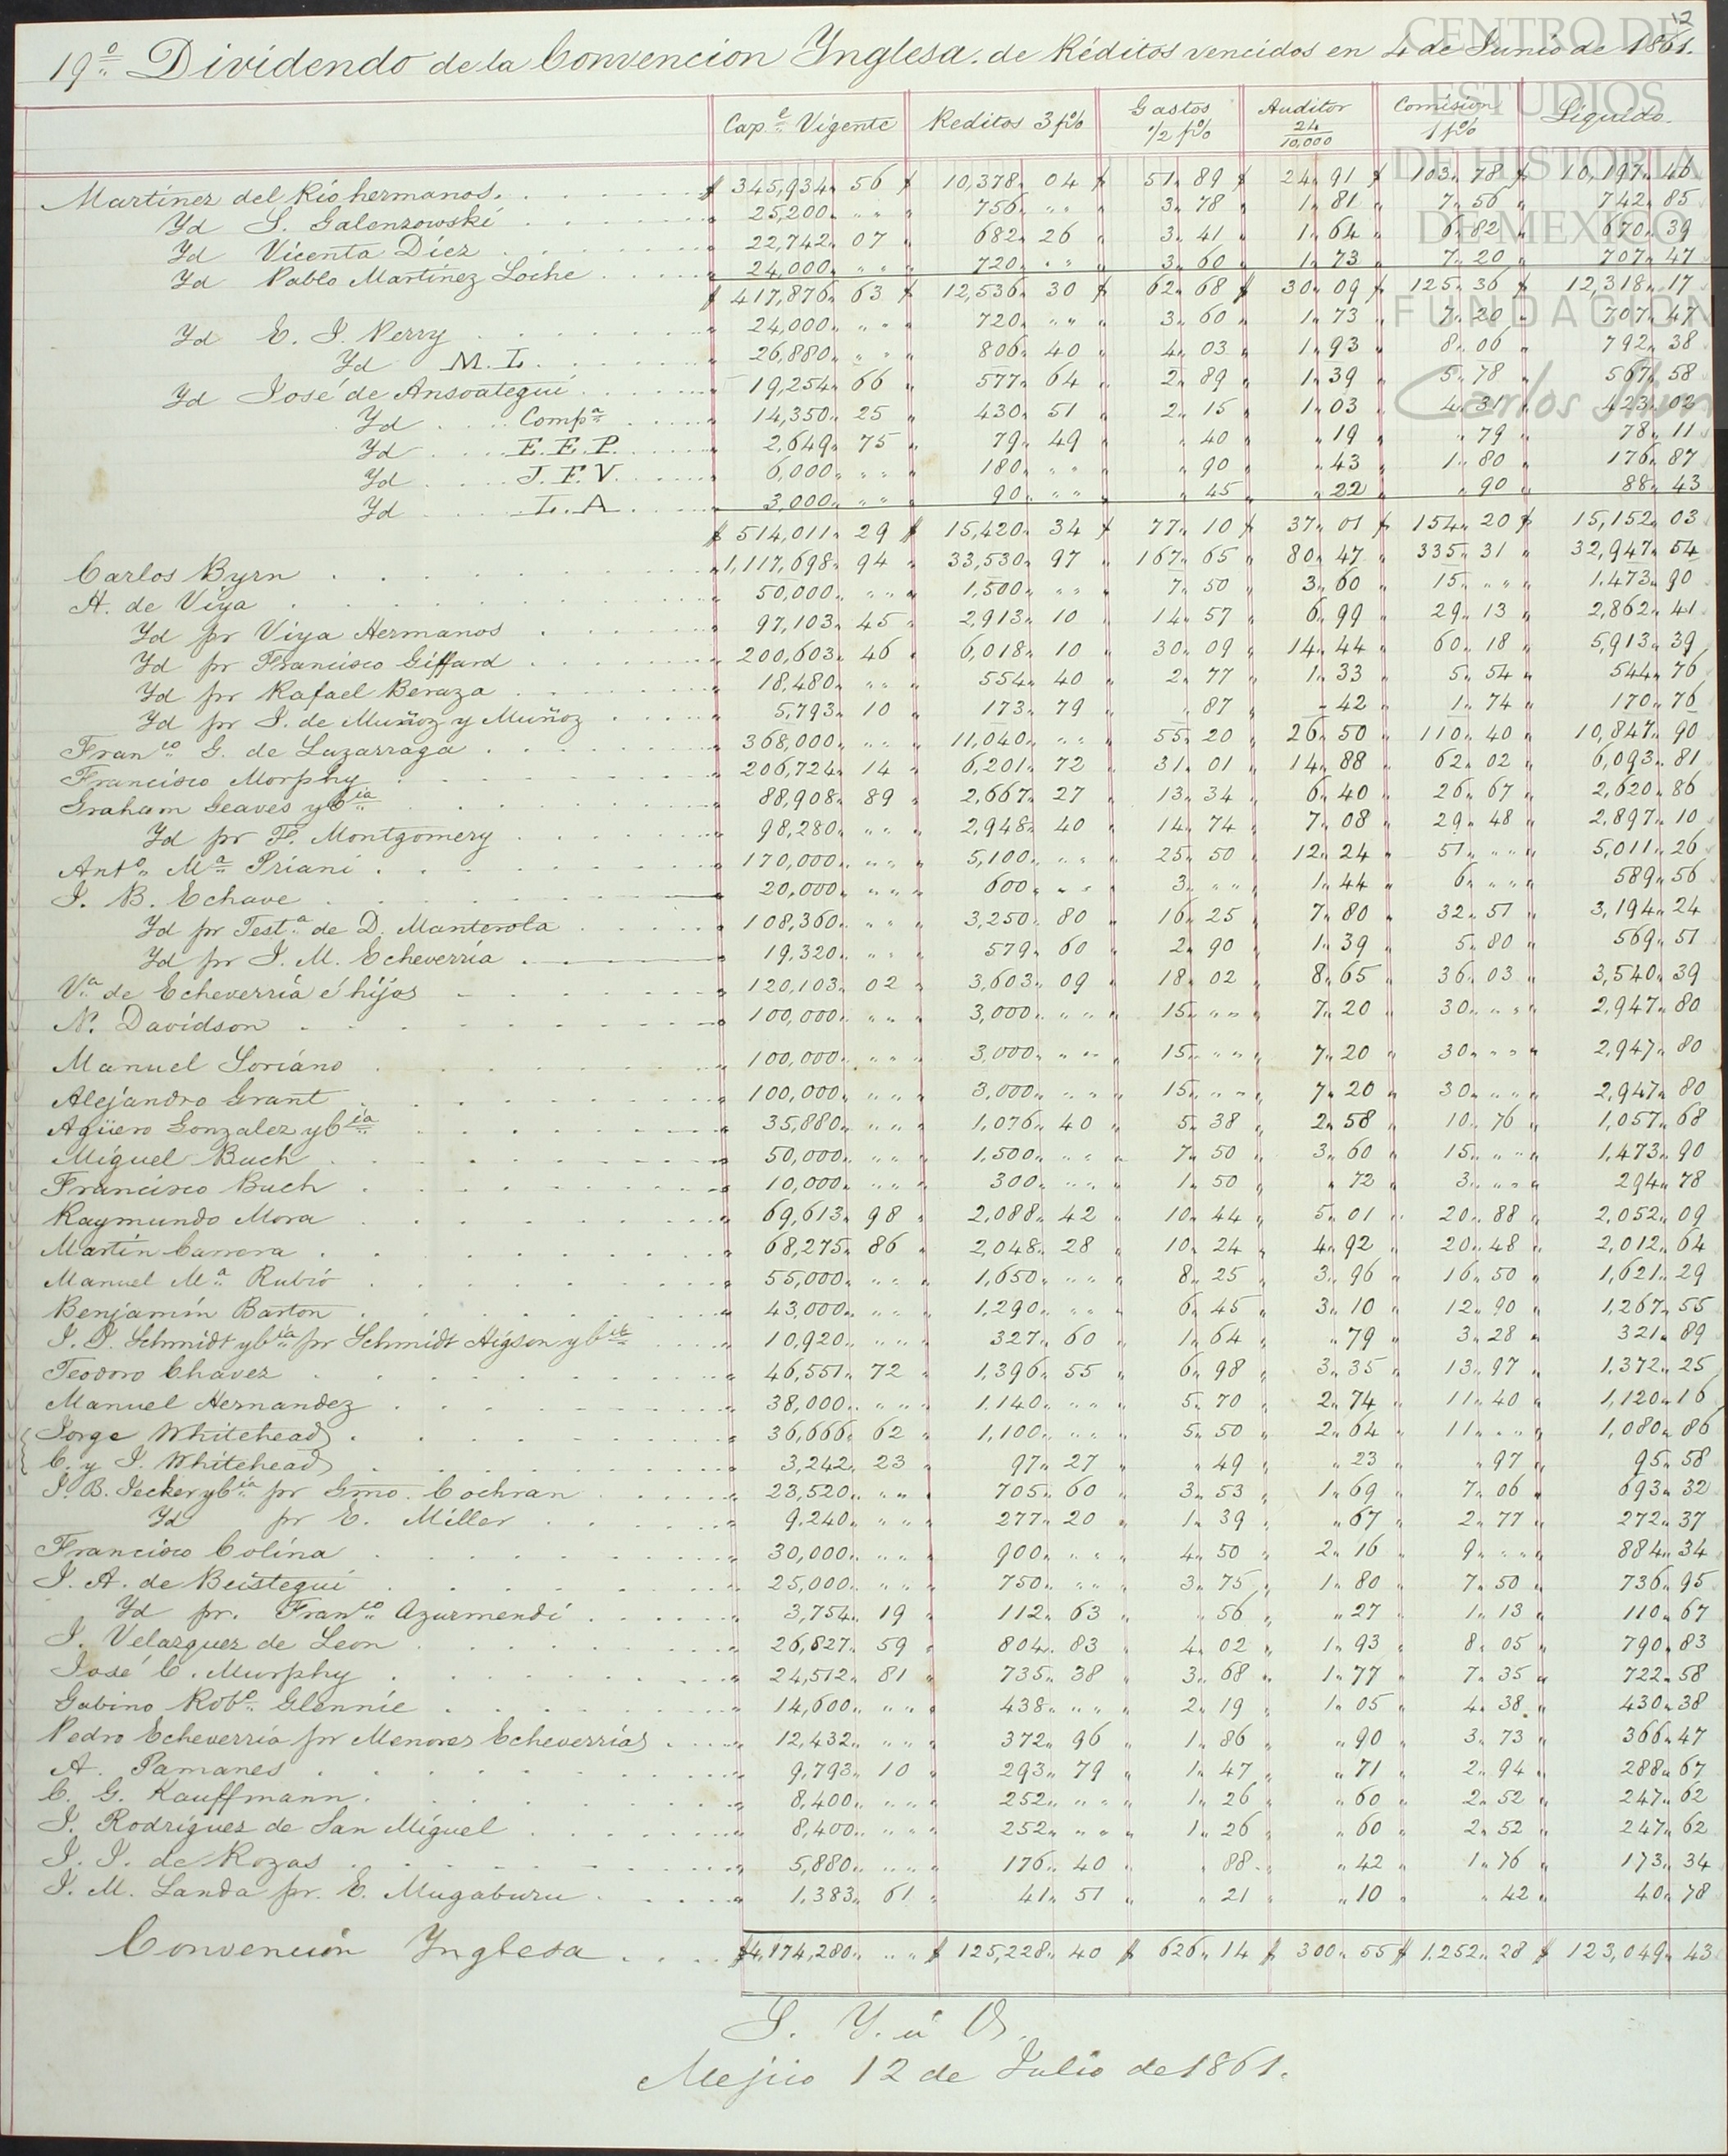 12
19º Dividendo de la Convencion Ynglesa. de Réditos vencidos en 4 de Junio de 1861.
CENTRO DE
ESTUDIOS
DE HISTORIA
DE MEXICO
FUNDACION
Carlos Slim
Cap.l Vigente Reditos 3 p% Gastos 1/2 p% Auditor 24/10,000 Comision 1 p% Liquido
Martinez del Rio hermanos. $ 345,934 56 $ 10,378 04 $ 51 89 $ 24 91 $ 103 78 $ 10,197 46
Yd S. Galenzowski 25,200 " " 756 " " 3 78 1 81 7 56 742 85
Yd Vicenta Diez 22,742 07 682 26 3 41 1 64 6 82 670 39
Yd Pablo Martinez Loche 24,000 " " 720 " " 3 60 1 73 7 20 707 47
$ 417,876 63 $ 12,536 30 $ 62 68 $ 30 09 $ 125 36 $ 12,318 17
Yd E. J. Perry 24,000 " " 720 " " 3 60 1 73 7 20 707 47
Yd M. L. 26,880 " " 806 40 4 03 1 93 8 06 792 38
Yd José de Ansoategui 19,254 66 577 64 2 89 1 39 5 78 567 58
Yd Comp.a 14,350 25 430 51 2 15 1 03 4 31 423 02
Yd E. E. P. 2,649 75 79 49 " 40 " 19 " 79 78 11
Yd J. F. V. 6,000 " " 180 " " " 90 " 43 1 80 176 87
Yd L. A 3,000 " " 90 " " " 45 " 22 " 90 88 43
$ 514,011 29 $ 15,420 34 $ 77 10 $ 37 01 $ 154 20 $ 15,152 03
Carlos Byrn 1,117,698 94 33,530 97 167 65 80 47 335 31 32,947 54
A. de Viya 50,000 " " 1,500 " " 7 50 3 60 15 " " 1,473 90
Yd pr Viya Hermanos 97,103 45 2,913 10 14 57 6 99 29 13 2,862 41
Yd pr Francisco Giffard 200,603 46 6,018 10 30 09 14 44 60 18 5,913 39
Yd pr Rafael Beraza 18,480 " " 554 40 2 77 1 33 5 54 544 76
Yd pr J. de Muñoz y Muñoz 5,793 10 173 79 " 87 " 42 1 74 170 76
Fran.co G. de Luzarraga 368,000 " " 11,040 " " 55 20 26 50 110 40 10,847 90
Francisco Morphy 206,724 14 6,201 72 31 01 14 88 62 02 6,093 81
Graham Geaves y C.ia 88,908 89 2,667 27 13 34 6 40 26 67 2,620 86
Yd pr F. Montgomery 98,280 " " 2,948 40 14 74 7 08 29 48 2,897 10
Ant.o M.a Priani 170,000 " " 5,100 " " 25 50 12 24 51 " " 5,011 26
J. B. Echave 20,000 " " 600 " " 3 " " 1 44 6 " " 589 56
Yd pr Test.a de D. Manterola 108,360 " " 3,250 80 16 25 7 80 32 51 3,194 24
Yd pr J. M. Echeverria 19,320 " " 579 60 2 90 1 39 5 80 569 51
V.a de Echeverria é hijos 120,103 02 3,603 09 18 02 8 65 36 03 3,540 39
N. Davidson 100,000 " " 3,000 " " 15 " " 7 20 30 " " 2,947 80
Manuel Soriano 100,000 " " 3,000 " " 15 " " 7 20 30 " " 2,947 80
Alejandro Grant 100,000 " " 3,000 " " 15 " " 7 20 30 " " 2,947 80
Agüero Gonzalez y C.ia 35,880 " " 1,076 40 5 38 2 58 10 76 1,057 68
Miguel Buch 50,000 " " 1,500 " " 7 50 3 60 15 " " 1,473 90
Francisco Buch 10,000 " " 300 " " 1 50 " 72 3 " " 294 78
Raymundo Mora 69,613 98 2,088 42 10 44 5 01 20 88 2,052 09
Martin Carrera 68,275 86 2,048 28 10 24 4 92 20 48 2,012 64
Manuel M.a Rubio 55,000 " " 1,650 " " 8 25 3 96 16 50 1,621 29
Benjamin Barton 43,000 " " 1,290 " " 6 45 3 10 12 90 1,267 55
J. P. Schmidt y C.ia pr Schmidt Higson y C.ia 10,920 " " 327 60 1 64 " 79 3 28 321 89
Teodoro Chavez 46,551 72 1,396 55 6 98 3 35 13 97 1,372 25
Manuel Hernandez 38,000 " " 1,140 " " 5 70 2 74 11 40 1,120 16
Jorge Whitehead 36,666 62 1,100 " " 5 50 2 64 11 " " 1,080 86
C. y J. Whitehead 3,242 23 97 27 " 49 " 23 " 97 95 58
J. B. Jecker y C.ia pr Gmo. Cochran 23,520 " " 705 60 3 53 1 69 7 06 693 32
Yd pr E. Miller 9,240 " " 277 20 1 39 " 67 2 77 272 37
Francisco Colina 30,000 " " 900 " " 4 50 2 16 9 " " 884 34
J. A. de Beistegui 25,000 " " 750 " " 3 75 1 80 7 50 736 95
Yd pr. Fran.co Azurmendi 3,754 19 112 63 " 56 " 27 1 13 110 67
J. Velazquez de Leon 26,827 59 804 83 4 02 1 93 8 05 790 83
José C. Murphy 24,512 81 735 38 3 68 1 77 7 35 722 58
Gabino Rob.o Glennie 14,600 " " 438 " " 2 19 1 05 4 38 430 38
Pedro Echeverria pr Menores Echeverrias 12,432 " " 372 96 1 86 " 90 3 73 366 47
A. Pamanes 9,793 10 293 79 1 47 " 71 2 94 288 67
C. G. Kauffmann. 8,400 " " 252 " " 1 26 " 60 2 52 247 62
J. Rodriguez de San Miguel 8,400 " " 252 " " 1 26 " 60 2 52 247 62
J. J. de Rozas 5,880 " " 176 40 " 88 " 42 1 76 173 34
J. M. Landa pr. E. Mugaburu 1,383 61 41 51 " 21 " 10 " 42 40 78
Convencion Ynglesa $4,174,280 " " $ 125,228 40 $ 626 14 $ 300 55 $ 1,252 28 $ 123,049 43
S. Y. ú O.
Mejico 12 de Julio de 1861.